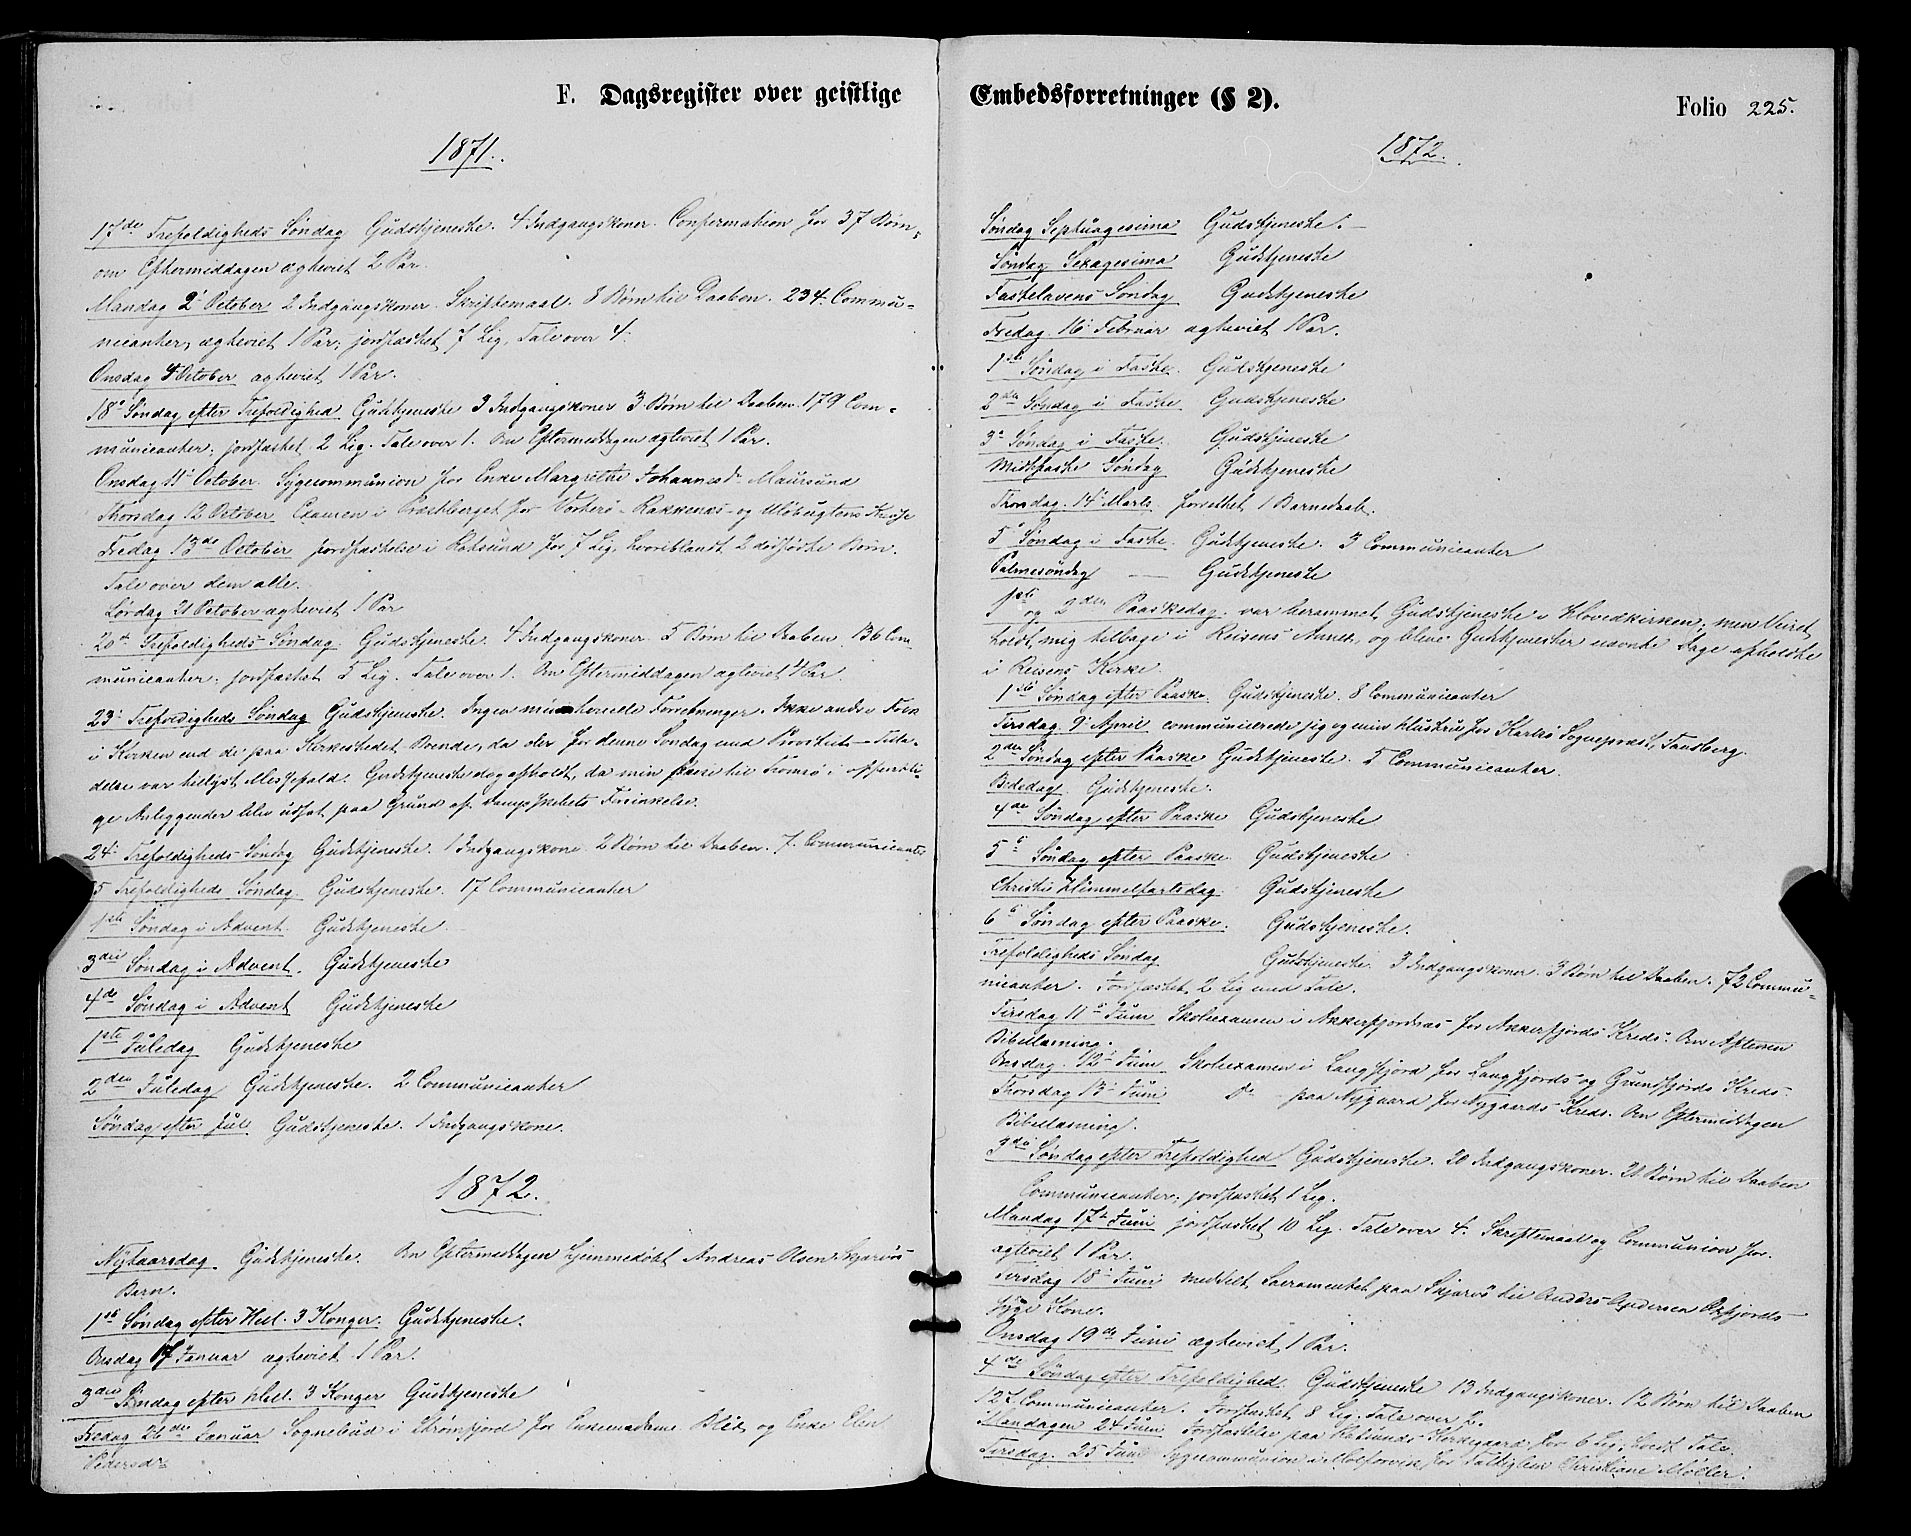 F. Dagsregister over geistlige
1871.
17de Trefoldigheds Søndag Gudstjeneste. 4 Indgangskoner. Confirmation for 37 Børn,
om Eftermiddagen ægteviet 2 Par.
Mandag 2' October 2 Indgangskoner. Skriftemaal. 8 Børn til Daaben. 234 Commu-
nicanter, ægteviet 1 Par; jordfæstet 7 Lig, Tale over 4.
Onsdag 4 October ægteviet 1 Par.
18' Søndag efter Trefoldighed. Gudstjeneste 3 Indgangskoner 3 Børn til Daaben. 179 Com-
municanter; jordfæstet 2 Lig. Tale over 1. Om Eftermiddagen ægteviet 1 Par.
Onsdag 11' October. Sygecommunion for Enke Margrethe Johannesdr Maursund
Thorsdag 12 October Examen i for Vorterø- Rakkenæs- og
Fredag 13de October jordfæstelse i Rotsund for 7 Lig, hvoriblandt 2 dødfødte Børn.
Tale over dem alle.
Lørdag 21 October ægteviet 1 Par
20de Trefoldigheds-Søndag. Gudstjeneste. 4 Indgangskoner. 5 Børn til Daaben. 136 Com
municanter; jordfæstet 5 Lig. Tale over 1. Om Eftermiddagen ægteviet 4 Par.
23' Trefoldigheds Søndag Gudstjeneste. Ingen ministerielle Forretninger. Ikke andre Folk
i Kirken end de paa Kirkestedet Boende, da der for denne Søndag med Provstiets Tilla-
delse var tillyst Messefald. Gudstjeneste dog afholdt, da min Reise til Tromsø i offentli-
ge Anliggender blev udsat paa Grund af Dampskibets Forsinkelse.
24' Trefoldigheds-Søndag Gudstjeneste. 1 Indgangskone. 2 Børn til Daaben. 7 Communicanter
5 Trefoldigheds Søndag. Gudstjeneste. 17 Communicanter
1ste Søndag i Advent. Gudstjeneste
3die Søndag i Advent. Gudstjeneste
4de Søndag i Advent Gudstjeneste
1ste Juledag Gudstjeneste
2den Juledag Gudstjeneste. 2 Communicanter
Søndag efter Jul Gudstjeneste. 1 Indgangskone.
1872.
Nytaarsdag Gudstjeneste. Om Eftermiddagen hjemmedøbt Andreas Olsen Skjervøs
Barn.
1ste Søndag efter Hell. 3 Konger. Gudstjeneste.
Onsdag 17 Januar ægteviet 1 Par.
3die Søndag efter Hell. 3 Konger Gudstjeneste
Fredag 26de Januar Sognebud i Strømfjord for Enkemadame Blix og Enke Elen
Pedersdr
Embedsforretninger (§ 2).
Folio 225.
1872.
Søndag Septuagesima Gudstjeneste.
Søndag Sexagesima Gudstjeneste
Fastelavens Søndag Gudstjeneste
Fredag 16' Februar ægteviet 1 Par.
1ste Søndag i Faste. Gudstjeneste
2den Søndag i Faste Gudstjeneste
3' Søndag i Faste. Gudstjeneste
Midtfaste Søndag Gudstjeneste
Thorsdag. 14' Marts forrettet 1 Barnedaab.
5' Søndag i Faste. Gudstjeneste. 3 Communicanter
Palmesøndag — Gudstjeneste
1ste og 2den Paaskedag. var berammet Gudstjeneste i Hovedkirken; men Veiret
holdt mig tilbage i Reisens Annex, og bleve Gudstjenester nævnte Dage afholdte
i Reisens Kirke.
1ste Søndag efter Paaske. Gudstjeneste. 8 Communicanter
Tirsdag. 9' April communicerede jeg og min Hustru for Karlsø Sognepræst, Tandberg.
2den Søndag efter Paaske Gudstjeneste. 5 Communicanter.
Bededag. Gudstjeneste.
4de Søndag efter Paaske Gudstjeneste
5' Søndag efter Paaske. Gudstjeneste
Christi Himmelfartsdag. Gudstjeneste
6' Søndag efter Paaske. Gudstjeneste.
Trefoldigheds Søndag Gudstjeneste. 3 Indgangskoner. 3 Børn til Daaben. 72 Commu-
nicanter. Jordfæstet 2 Lig med Tale.
Tirsdag 11' Juni Skoleexamen i Akkerfjordnæs for Akkerfjords Kreds. Om Aftenen
Bibellæsning.
Onsdag. 12' Juni Skoleexamen i Langfjord for Langfjords og Grundfjords Kreds.
Thorsdag 13' Juni Do - paa Nygaard for Nygaards Kreds. Om Eftermiddagen
Bibellæsning.
3die Søndag efter Trefoldighed Gudstjeneste. 20 Indgangskoner. 21 Børn til Daaben
Communicanter; jordfæstet 1 Lig.
Mandag 17' Juni jordfæstet 10 Lig. Tale over 4. Skriftemaal og Communion for.
ægteviet 1 Par.
Tirsdag 18' Juni meddelt Sacramentet paa Skjervø til Anders Andersen Oxfjords
syge Kone.
Onsdag 19de Juni ægteviet 1 Par.
4de Søndag efter Trefoldighed. Gudstjeneste 13 Indgangskoner. 12 Børn til Daaben
127 Communicanter. Jordfæstet 8 Lig. Tale over 2.
Mandagen 24 Juni Jordfæstelse paa Rotsunds Kirkegaard for 6 Lig, holdt Tale.
Tirsdag. 25 Juni Sygecommunion i for Fattiglem Christiane Møller.